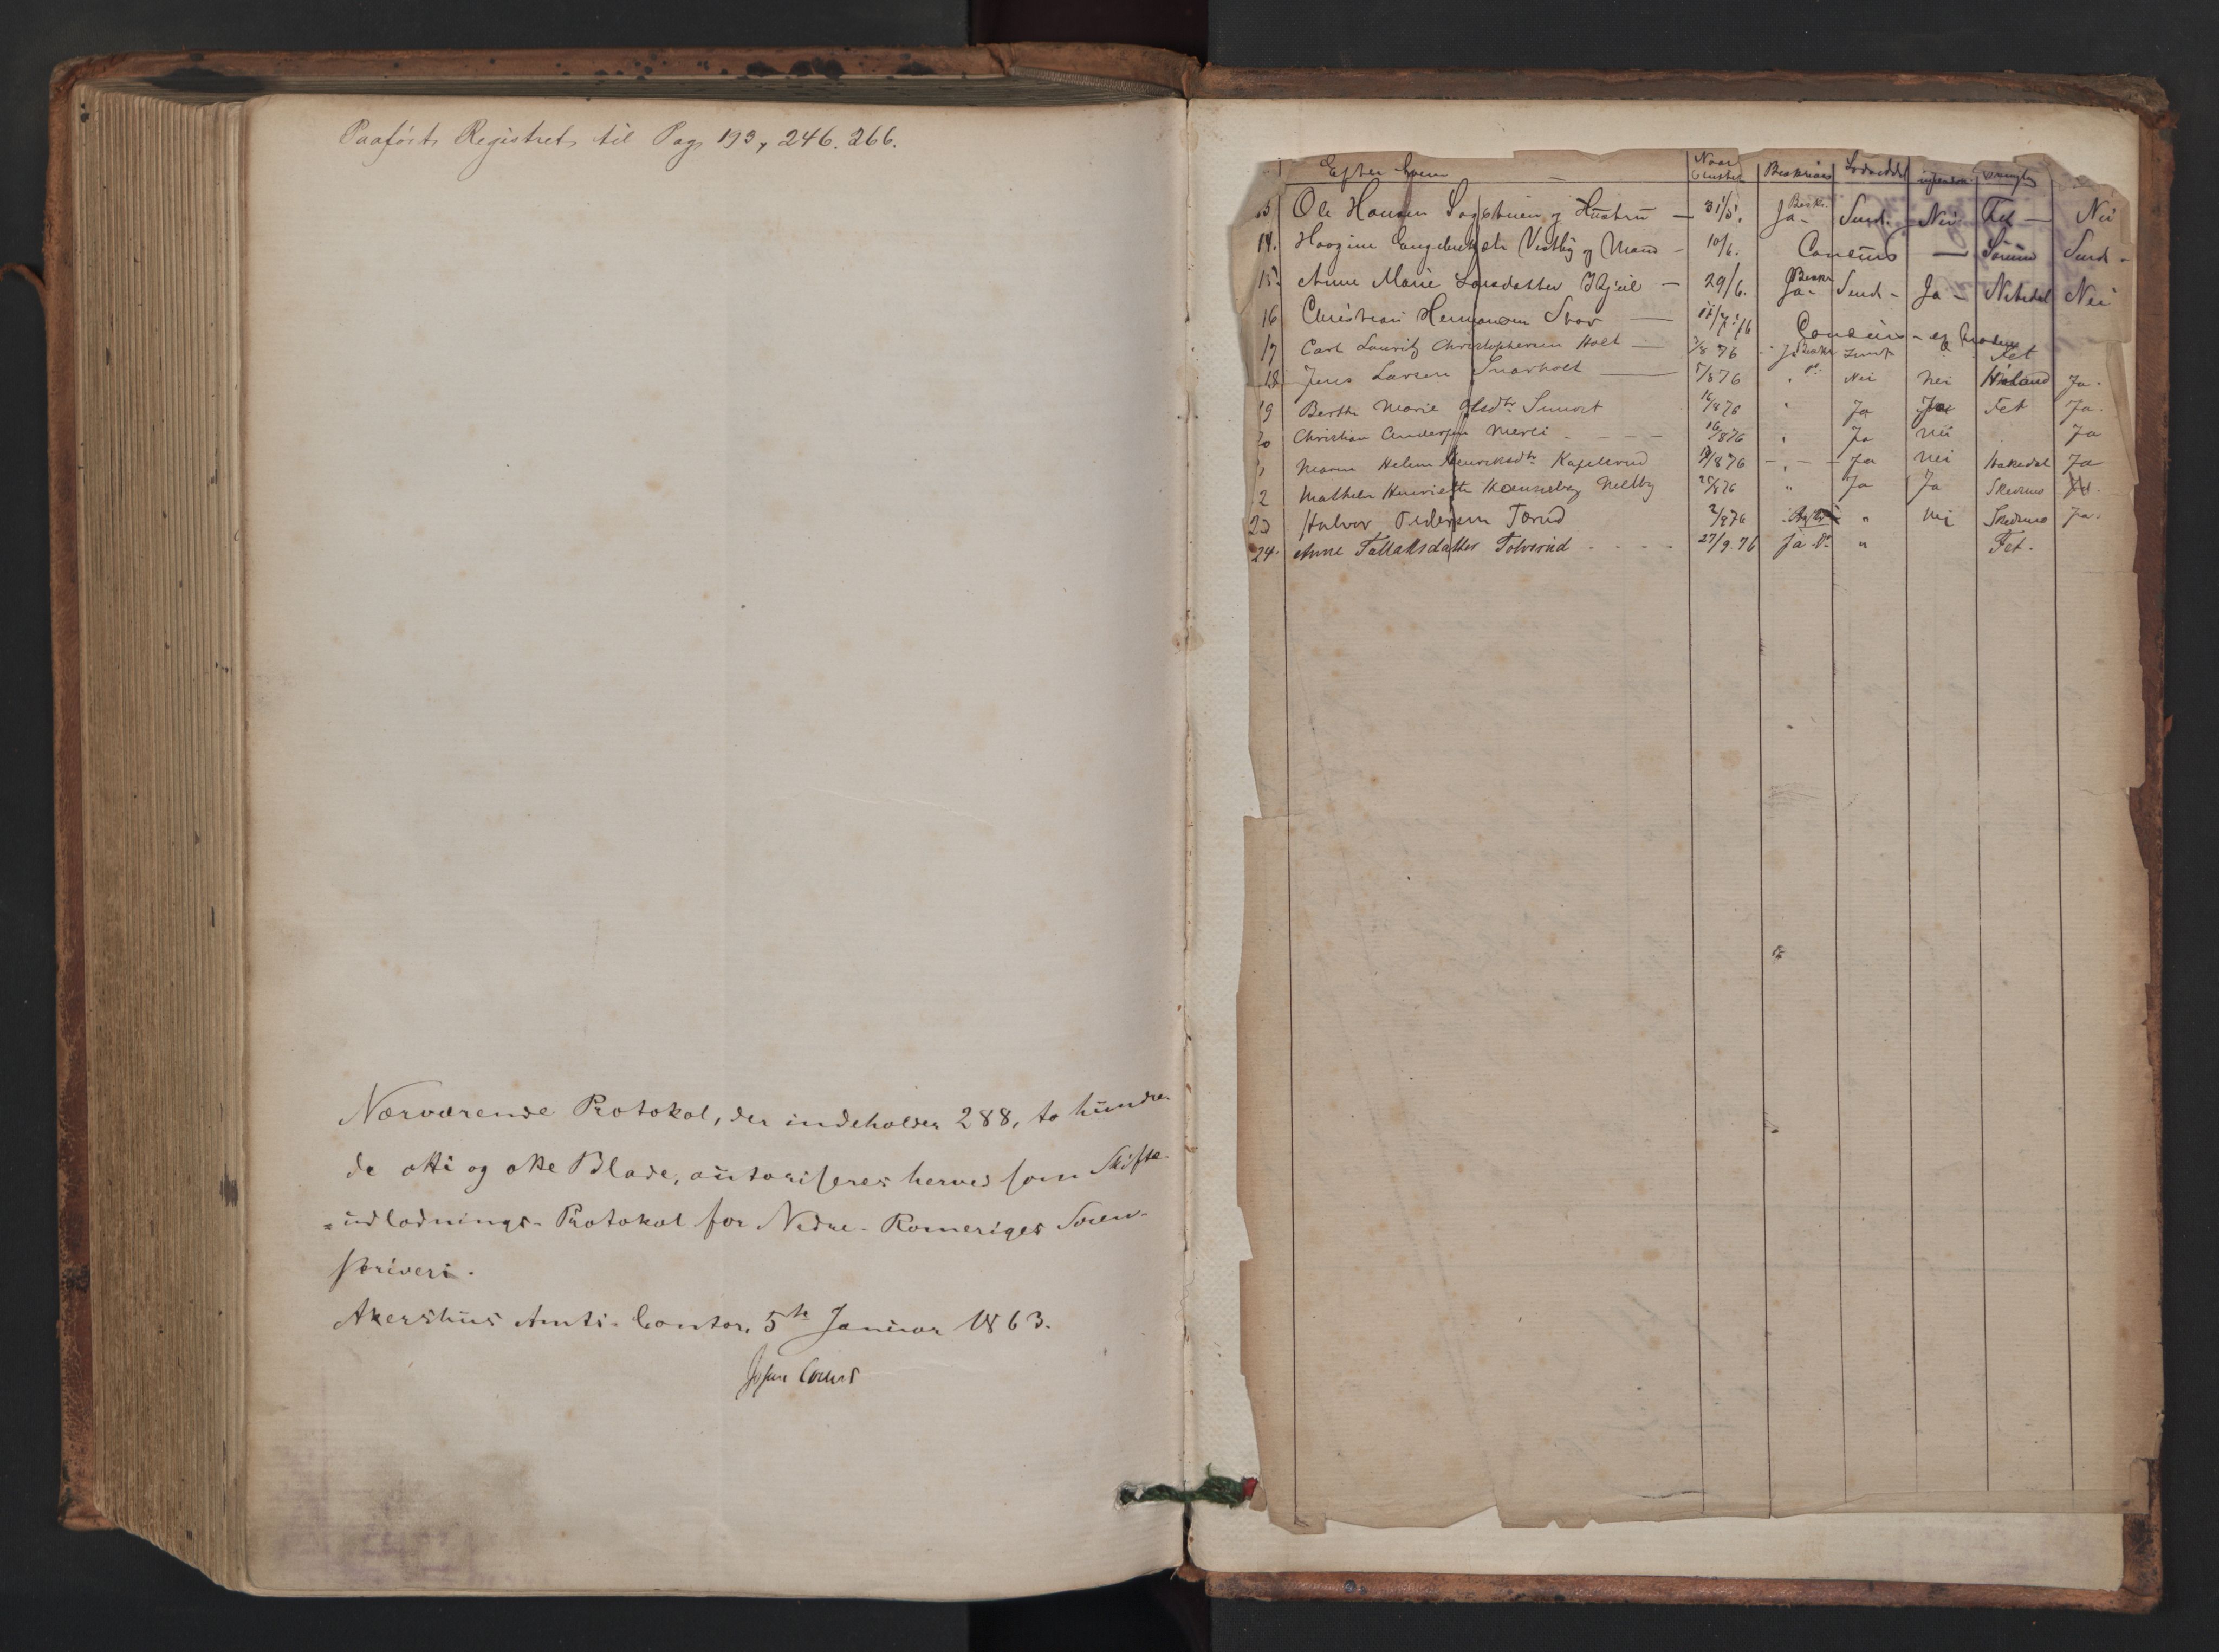 Paaført Registret til Pag 193, 246. 266.
Nærværende Protokol, der indeholder 288, to hundre-
de otti og otte Blade, autoriseres herved som Skifte-
=udlodnings-Protokol for Nedre-Romeriges Soren-
skriveri.
Akershus Amts-Contor, 5te Januar 1863.
Efter hvem Naar sluttet Beskreven Lodseddel
Ole Hansen Sagstuen og Hustru — 31/5. Beskr. Ja - Sendt. Nei Fet — Nei
14. Vestby og Mand - 10/6. Concurs — Sørum Sendt -
15. Anne Marie Larsdatter — 29/6. Beskr Ja - Sendt - Ja - Nitedal Nei
16 Christian Hermansen — Concurs -
17 Carl Lauritz Christophersen Holt — 76 Beskr Fet
18 Jens Larsen Snarholt — 5/8 76 Do Nei Nei Høland Ja.
19 Berthe Marie Olsdtr 16/8 76 " Ja Fet Ja.
Christian Andersen - - - 16/8 76 " Ja Nei Ja
Maren Helene Henriksdtr 8 76 - " - Ja Nei Hakedal Ja
2 Mathea Henriette Nelby " Ja Ja Skedsmo
23 Halvor Pedersen Tærud 76 " Nei Skedsmo Ja.
24. Anne Tallaksdatter Tolvsrud - - - - 27/9. 76 Ja. Do " Fet.